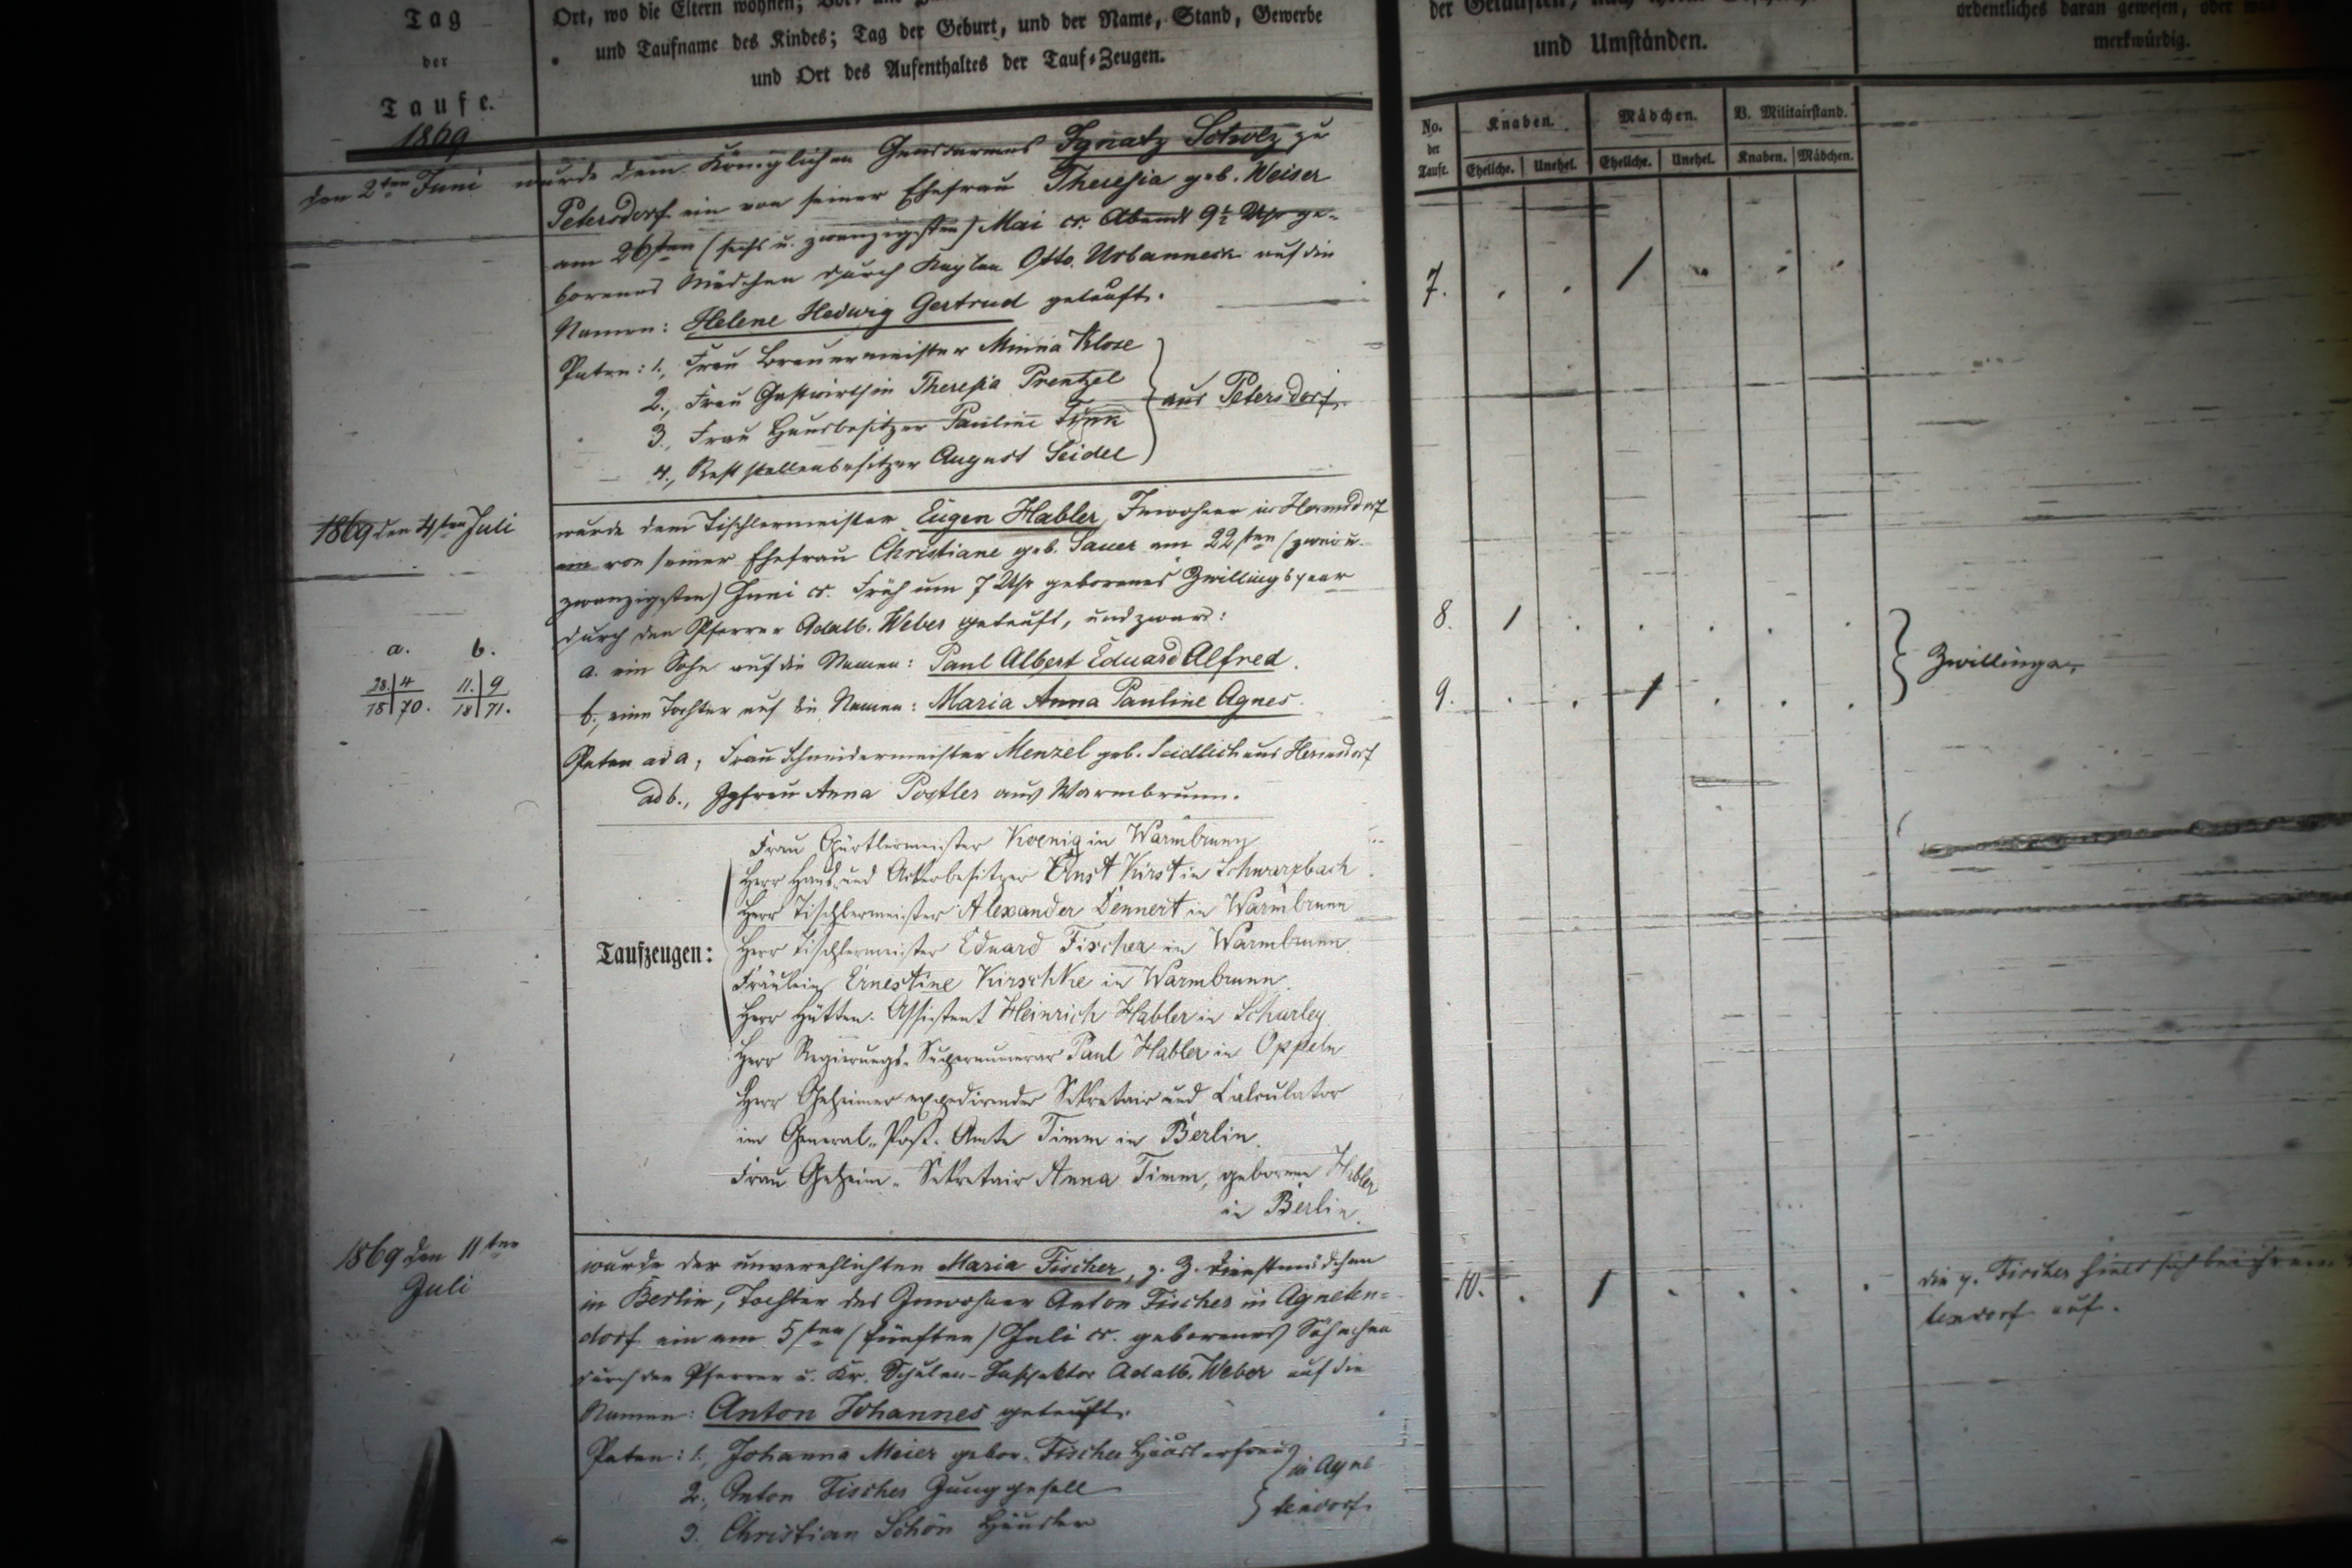 Tag
der
Taufe.
Ort, wo die Eltern wohnen;
und Taufname des Kindes; Tag der Geburt, und der Name, Stand, Gewerbe
und Ort des Aufenthaltes der Tauf-Zeugen.
und Umständen.
ordentliches daran gewesen, oder was
merkwürdig.
No. der Taufe.
Knaben.
Mädchen.
B. Militairstand.
Eheliche. Unehel. Eheliche. Unehel. Knaben. Mädchen.
1869
den 2ten Juni
wurde dem Königlichen Gensdarmes Ignatz Scholz zu
Petersdorf ein von seiner Ehefrau Theresia geb. Weiser
am 26sten (sechs u. zwanzigsten) Mai cr. Abends 9½ Uhr ge-
borenes Mädchen durch Kaplan Otto Urbanneck auf die
Namen: Helene Hedwig Gertrud getauft.
7. . . / . . .
Paten: 1., Frau Brauermeister Minna Klose
2., Frau Gastwirthin Theresia Prentzel
3., Frau Hausbesitzer Pauline
4., Reststellenbesitzer August Seidel
aus Petersdorf.
1869 den 4ten Juli
wurde dem Tischlermeister Eugen Habler, Inwohner in Hermsdorf
ein von seiner Ehefrau Christiane geb. Sauer am 22sten (zwei u.
zwanzigsten) Juni cr. Früh um 7 Uhr geborenes Zwillingspaar
durch den Pfarrer Adalb. Weber getauft, und zwar:
a. ein Sohn auf die Namen: Paul Albert Eduard Alfred.
8. / . . . . .
b., eine Tochter auf die Namen: Maria Anna Pauline Agnes.
9. . . / . . .
Zwillinge.
a. b.
28. | 4 11. | 9
18 | 70. 18 | 71.
Paten ad a, Frau Schneidermeister Menzel geb. Seidlich aus Hermsdorf
ad b., Jgfrau Anna Postler aus Warmbrunn.
Taufzeugen:
Frau Gürtlermeister Koenig in Warmbrunn
Herr Haus und Ackerbesitzer Ernst Kirst in Schwarzbach.
Herr Tischlermeister Alexander Dennert in Warmbrunn
Herr Tischlermeister Eduard Fischer in Warmbrunn.
Fräulein Ernestine Kirschke in Warmbrunn.
Herr Hütten-Assistent Heinrich Habler in Scharley
Herr Regierungs-Supernumerar Paul Habler in Oppeln
Herr Geheimer expedirender Sekretair und Calculator
im General-Post-Amte Timm in Berlin.
Frau Geheim-Sekretair Anna Timm, geborene Habler
in Berlin.
1869 den 11ten
Juli
wurde der unverehlichten Maria Fischer, z. Z. Dienstmädchen
in Berlin, Tochter des Inwohner Anton Fischer in Agneten-
dorf ein am 5ten (fünften) Juli cr. geborenes Söhnchen
durch den Pfarrer u. Kr. Schulen-Inspektor Adalb. Weber auf die
Namen: Anton Johannes getauft.
10. . / . . . .
die p. Fischer hielt sich bei ihrem
tendorf auf.
Paten: 1., Johanna Meier gebor. Fischer Häuslerfrau
2., Anton Fischer Junggesell
3. Christian Schön Häusler
in Agne-
tendorf.